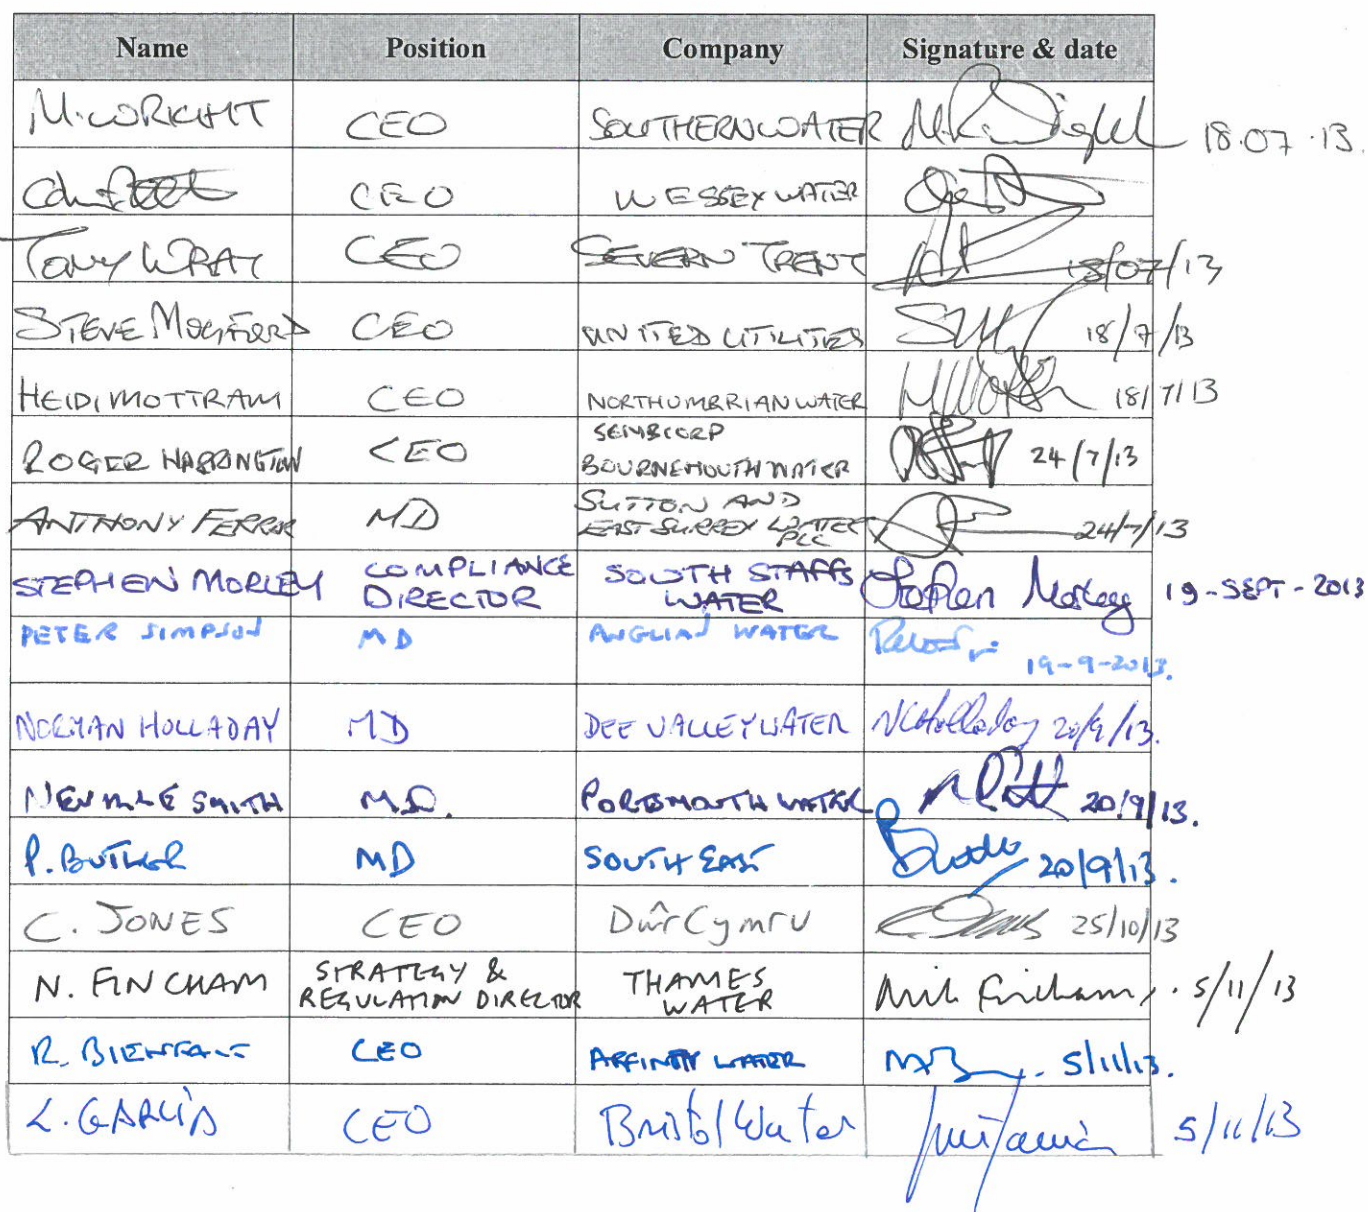 Name Position Company Signature & date
M. WRIGHT CEO SOUTHERN WATER 18.07.13.
CEO WESSEX WATER
TONY WRAY CEO SEVERN TRENT 18/07/13
STEVE MOGFORD CEO UNITED UTILITIES 18/7/13
HEIDI MOTTRAM CEO NORTHUMBRIAN WATER 18/7/13
ROGER HARRINGTON CEO SEMBCORP
BOURNEMOUTH WATER 24/7/13
ANTHONY FERRAR MD SUTTON AND
EAST SURREY WATER
PLC 24/7/13
STEPHEN MORLEY COMPLIANCE
DIRECTOR SOUTH STAFFS
WATER Stephen Morley 19-SEPT-2013
PETER SIMPSON MD ANGLIAN WATER 19-9-2013.
NORMAN HOLLADAY MD DEE VALLEY WATER N Holladay 20/9/13.
NEVILLE SMITH M.D. PORTSMOUTH WATER 20/9/13.
P. BUTLER MD SOUTH EAST 20/9/13.
C. JONES CEO Dŵr Cymru 25/10/13
N. FINCHAM STRATEGY &
REGULATION DIRECTOR THAMES
WATER Nick Fincham, 5/11/13
R. BIENFAIT CEO AFFINITY WATER 5/11/13.
L. GARCÍA CEO Bristol Water 5/11/13